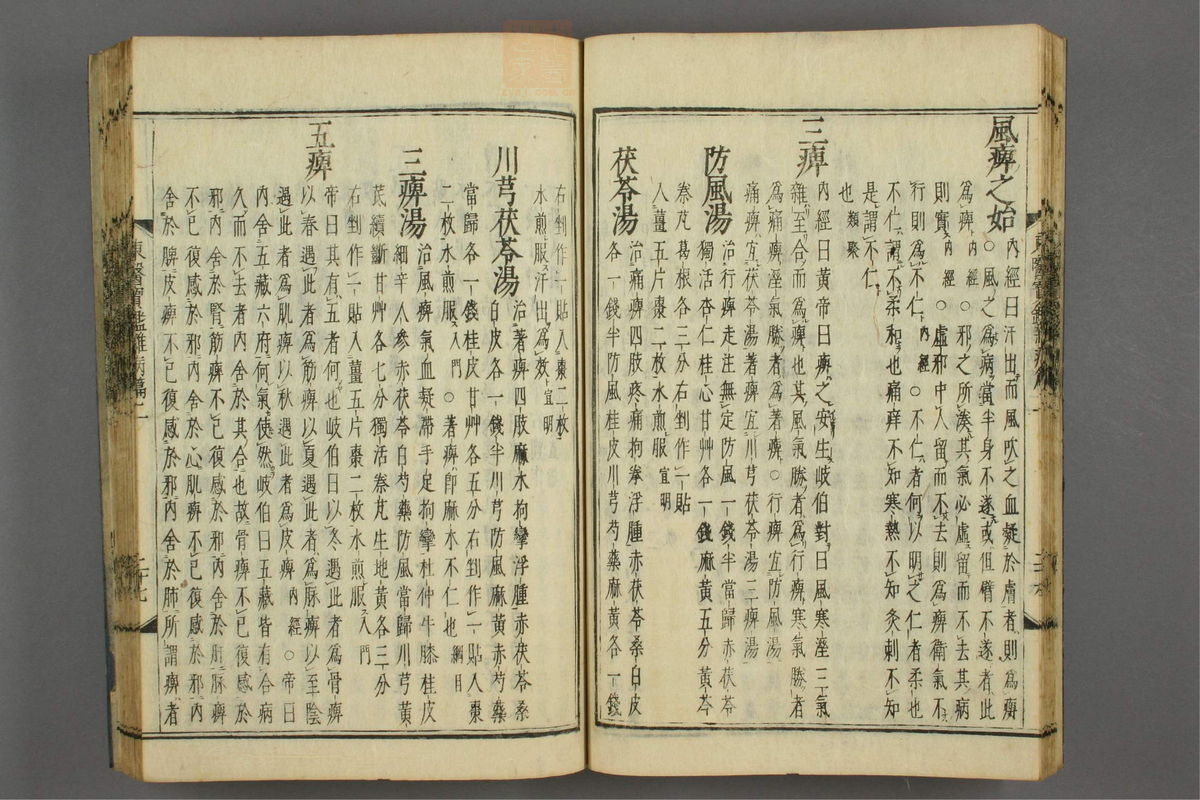 風痺之始
內經曰汗出而風吹之血凝於膚者則爲痺
○風之爲病當半身不遂或但臂不遂者此
爲痺內經○邪之所湊其氣必虛留而不去其病
則實內經○虛邪中人留而不去則爲痺衛氣不
行則爲不仁內經○不仁者何以明之仁者柔也
不仁謂不柔和也痛痒不知寒熱不知灸刺不知
是謂不仁
也類聚
三痺
內經曰黃帝曰痺之安生岐伯對曰風寒濕三氣
雜至合而爲痺也其風氣勝者爲行痺寒氣勝者
爲痛痺濕氣勝者爲著痺○行痺宜防風湯
痛痺宜茯苓湯著痺宜川芎茯苓湯三痺湯
防風湯
治行痺走注無定防風一錢半當歸赤茯苓
獨活杏仁桂心甘艸各一錢麻黃五分黃芩
秦艽葛根各三分右剉作一貼
入薑五片棗二枚水煎服宜明
茯苓湯
治痛痺四肢疼痛拘拳浮腫赤茯苓桑白皮
各一錢半防風桂皮川芎芍藥麻黃各一錢
右剉作一貼入棗二枚
水煎服汗出爲效宜明
川芎茯苓湯
治著痺四肢麻木拘攣浮腫赤茯苓桑
白皮各一錢半川芎防風麻黃赤芍藥
當歸各一錢桂皮甘艸各五分右剉作一貼入棗
二枚水煎服入門○著痺卽麻木不仁也綱目
三痺湯
治風痺氣血凝滯手足拘攣杜仲牛膝桂皮
細辛人參赤茯苓白芍藥防風當歸川芎黃
芪續斷甘艸各七分獨活秦艽生地黃各三分
右剉作一貼入薑五片棗二枚水煎服入門
五痺
帝曰其有五者何也岐伯曰以冬遇此者爲骨痺
以春遇此者爲筋痺以夏遇此者爲脈痺以至陰
遇此者爲肌痺以秋遇此者爲皮痺內經○帝曰
內舍五藏六府何氣使然岐伯曰五藏皆有合病
久而不去者內舍於其合也故骨痺不已復感於
邪內舍於腎筋痺不已復感於邪內舍於肝脈痺
不已復感於邪內舍於心肌痺不已復感於邪內
舍於脾皮痺不已復感於邪內舍於肺所謂痺者
東醫寶鑑雜病篇二
二十七